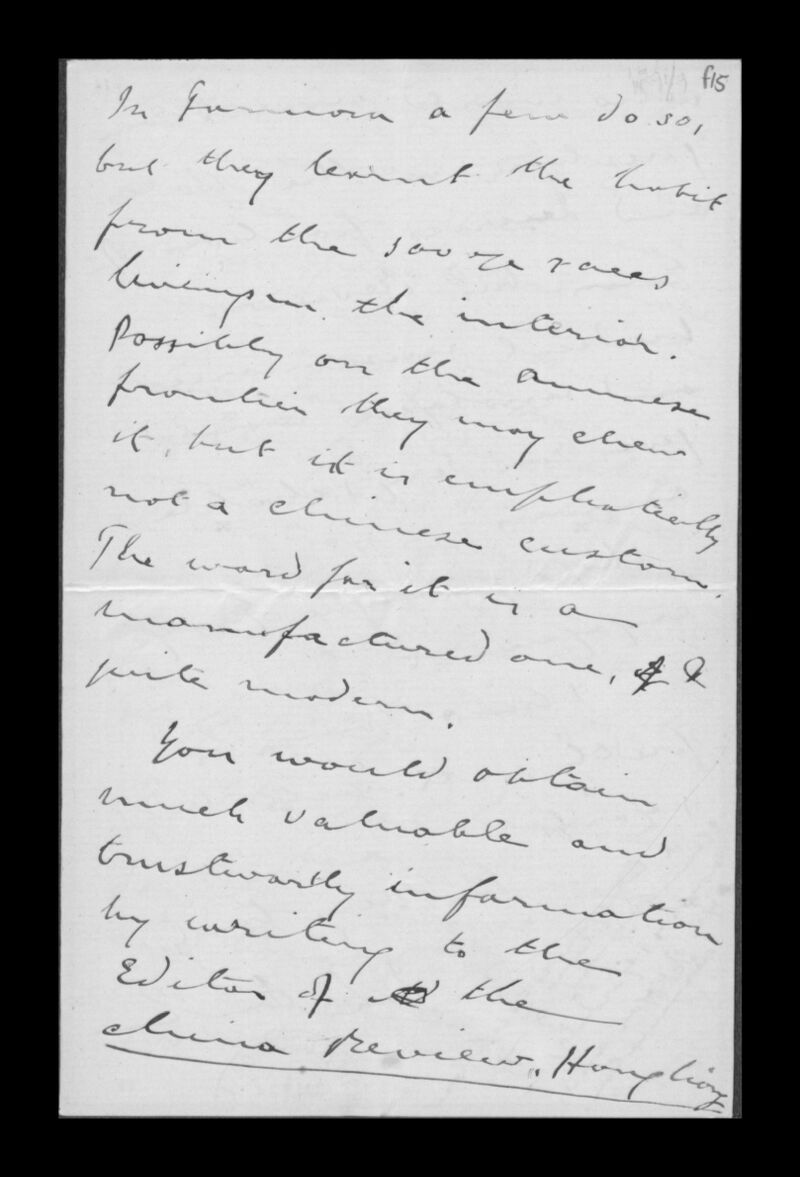 f15
In Formosa a few do so,
but they learnt the habit
from the savage races
living in the interior.
Possibly on the Annamese
frontier they may chew
it, but it is emphatically
not a Chinese custom.
The word for it is a
manufactured one, &
quite modern.
You would obtain
much valuable and
trustworthy information
by writing to the
Editor of the
China Review, Hongkong